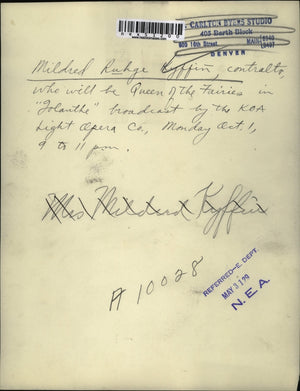 CARLTON STUDIO
405 Barth Block
909 16th Street.
DENVER
Mildred Ruhge Kyffin, contralto,
who will be Queen of the Fairies in
"Iolanthe" broadcast by the KOA
Light Opera Co., Monday Oct. 1,
9 to 11 p.m.
Mrs Mildred Kyffin
A 10028
REFERRED-E. DEPT
MAY 31 29
N. E. A.